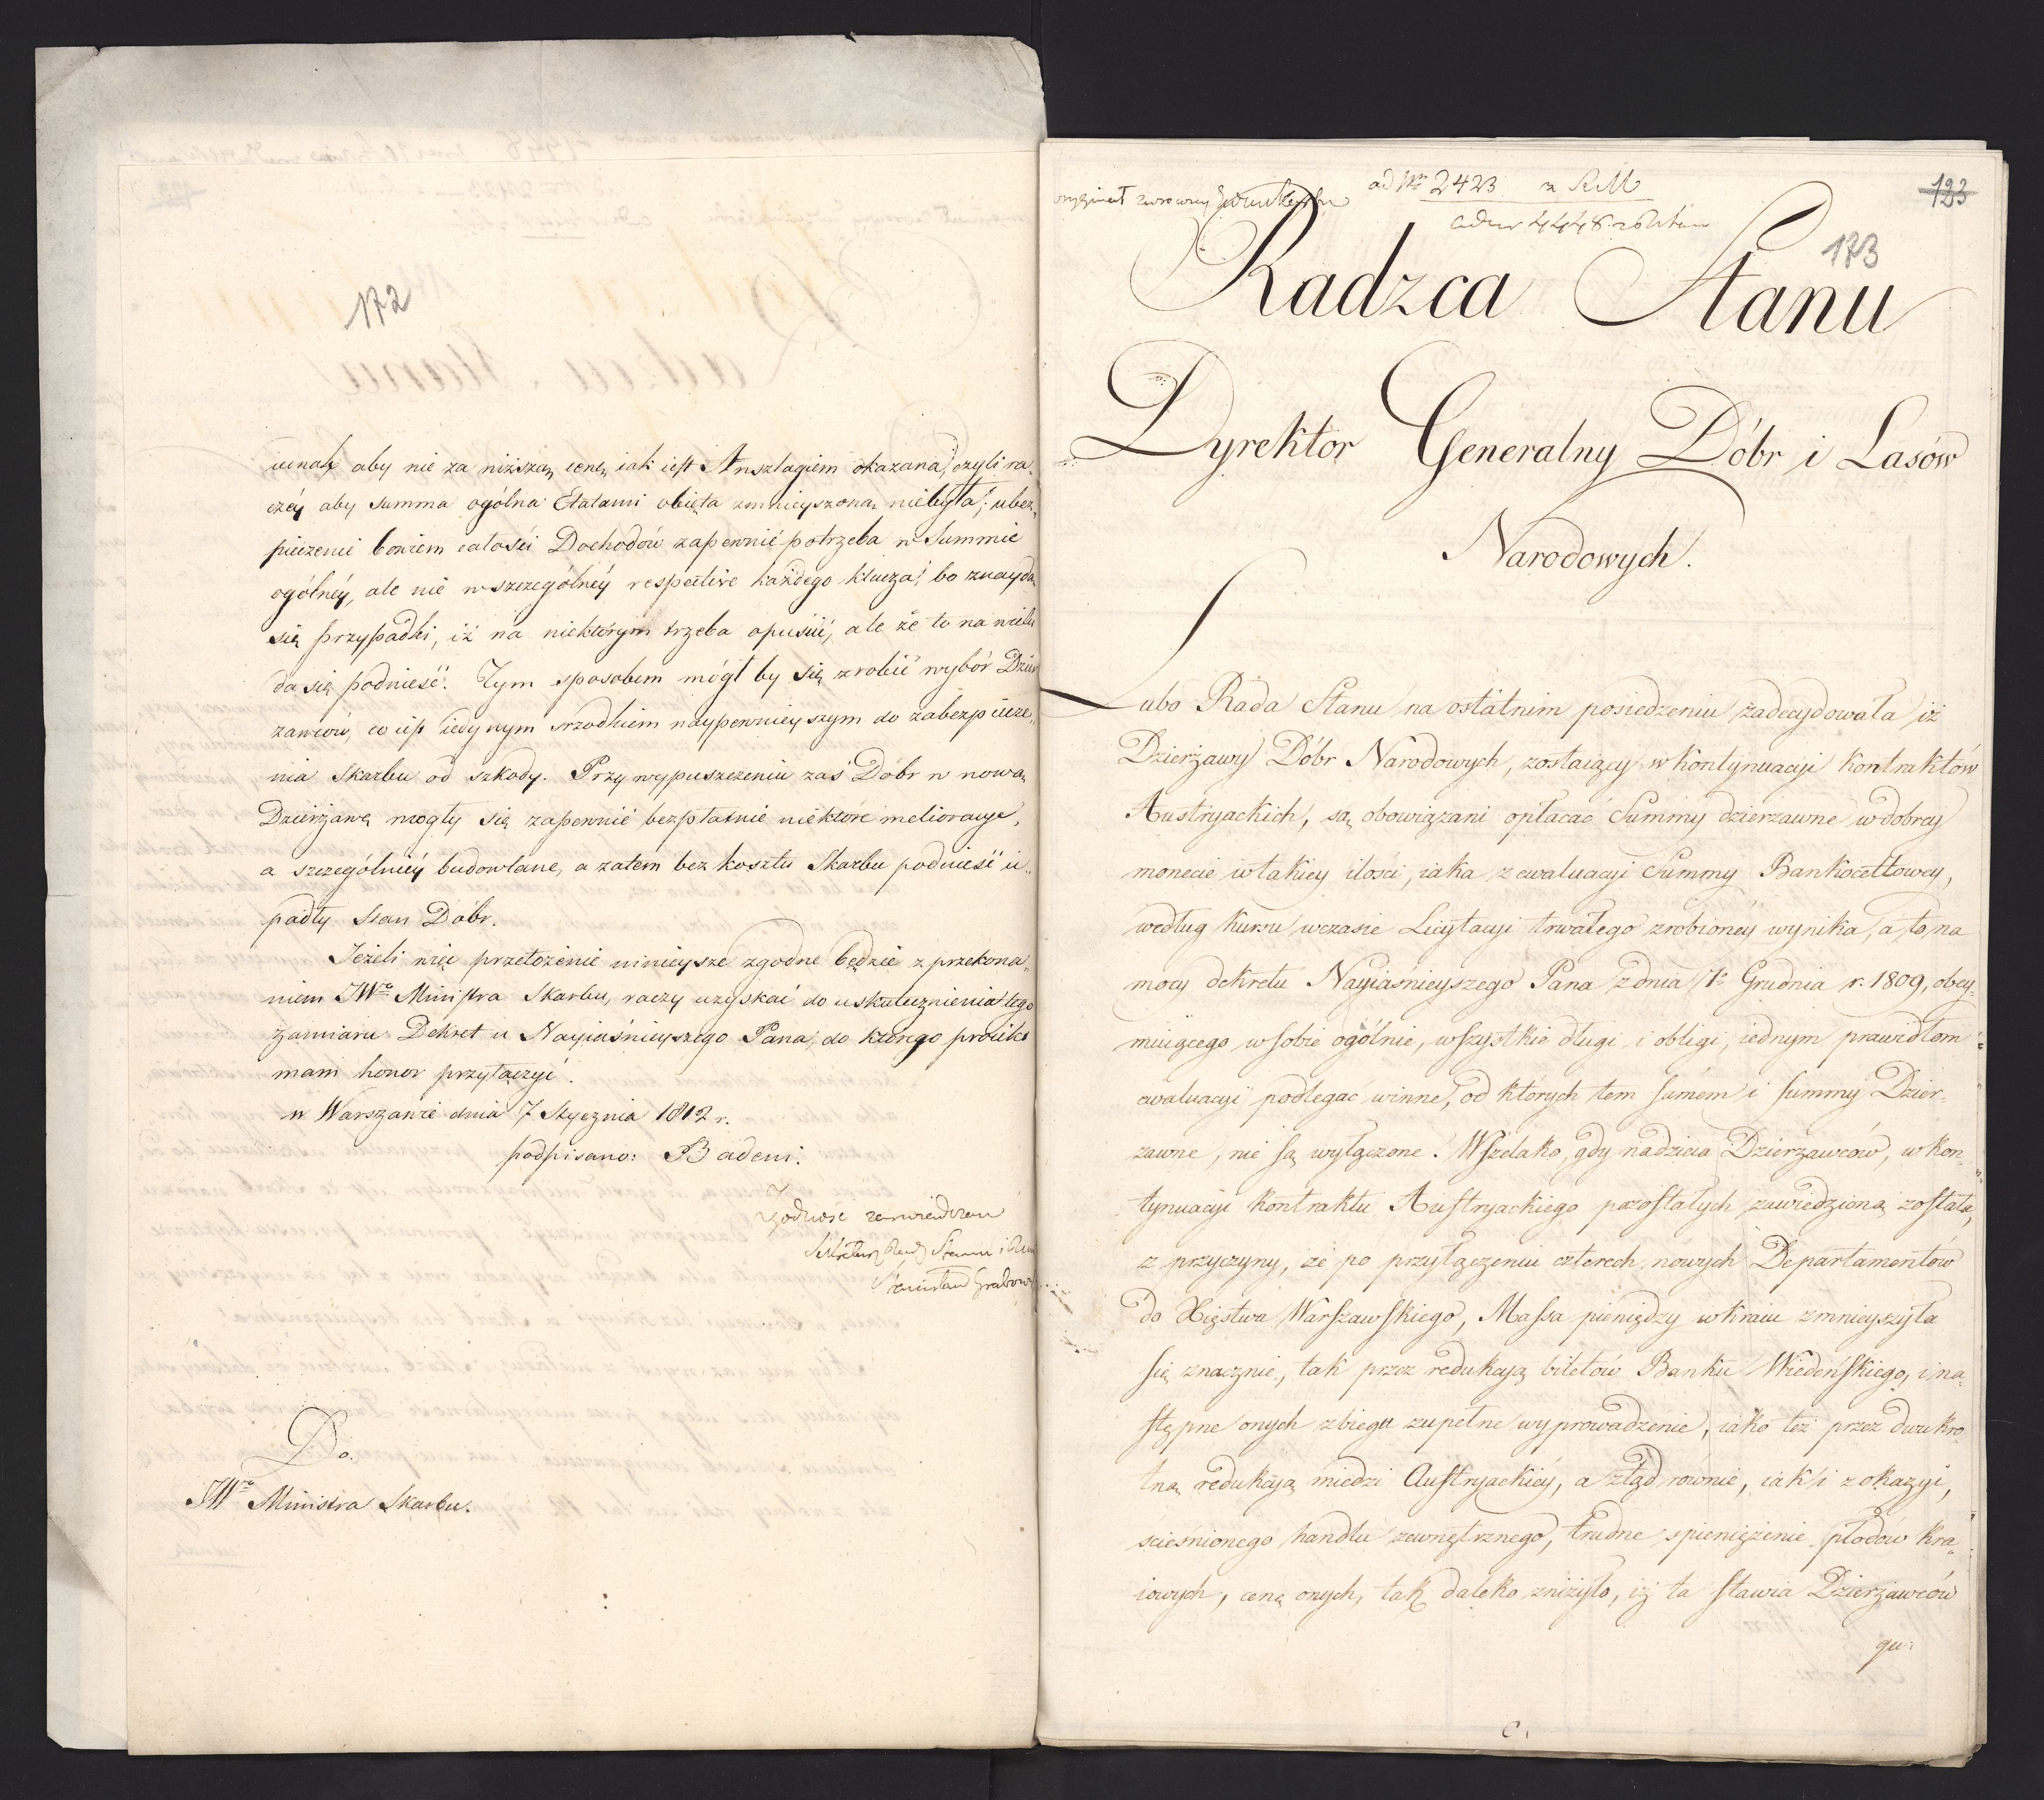 172
aby nie za niższą cenę iak iest Anszlagiem okazana, czyli ra
czéy aby summa ogólna Etatami obięta zmnieyszoną niebyła; ubez„
pieczenie bowiem całości Dochodów zapewnić potrzeba w Summie
ogólnéy, ale nie w szczególnéy respective każdego klucza; bo znayda
się przypadki, iż na niektórym trzeba opuścić, ale że to na wielu
da się podnieść. Tym sposobem mógł by się zrobić wybór Dzier
zawców, co iest iedynym srzodkiem naypewnieyszym do zabezpiecze„
nia Skarbu od szkody. Przy wypuszczeniu zaś Dóbr w nową
Dzierżawę mogły się zapewnić bezpłatnie niektóre melioracye,
a szczególniéy budowlane, a zatem bez kosztu Skarbu podnieść u„
padły Stan Dóbr.
Jeżeli więc przełożenie ninieysze zgodne będzie z przekona„
niem JWo Ministra Skarbu, raczy uzyskać do uskutecznienia tego
zamiaru Dekret u Nayiaśnieyszego Pana, do którego proiekt
mam honor przyłączyć.
w Warszawie dnia 7 Stycznia 1812 r.
podpisano: Badeni.
Zgodność zaswiadczam
Sekretarz Rady Stanu i
Stanisław Grabow
Do.
JWo Ministra Skarbu.
oryginał zwrócony
ad Nro 2423 z RM
ad nr 4448
123
173
Radzca Stanu
Dyrektor Generalny Dóbr i Lasów
Narodowych.
Lubo Rada Stanu na ostatnim posiedzeniu zadecydowała iż
Dzierżawy Dóbr Narodowych, zostaiący w kontynuacyi kontraktów
Austryackich, są obowiązani opłacać Summy dzierzawne w dobrey
monecie w takiey ilości, iaka z ewaluacyi Summy Bankocetlowey,
według kursu wczasie Licytacyi trwałego zrobionéy wynika, a to na
mocy dekretu Nayiaśnieyszego Pana z dnia 1o Grudnia r. 1809, obey„
muiącego w sobie ogólnie, wszystkie długi i obligi, iednym prawidłom
ewaluacyi podlegać winne, od których tem samém i summy Dzier„
zawne, nie są wyłączone. Wszelako, gdy nadzieia Dzierzawców, w kon„
tynuacyi kontraktu Austryackiego pozostałych zawiedzioną została,
z przyczyny, że po przyłączeniu czterech nowych Departamentów
do Xięstwa Warszawskiego, Massa pieniędzy w kraiu zmnieyszyła
się znacznie, tak przez redukcyą biletów Banku Wiedeńskiego, i na„
stępne onych zbiegu zupełne wyprowadzenie, iako też przez dwukro
tną redukcyą miedzi Austryackiéy, a ztąd równie, iak i z okazyi,
scieśnionego handlu zewnętrznego, trudne spieniężenie płodów kra„
iowych, cenę onych, tak daleko zniżyło, iż ta stawia Dzierżawców